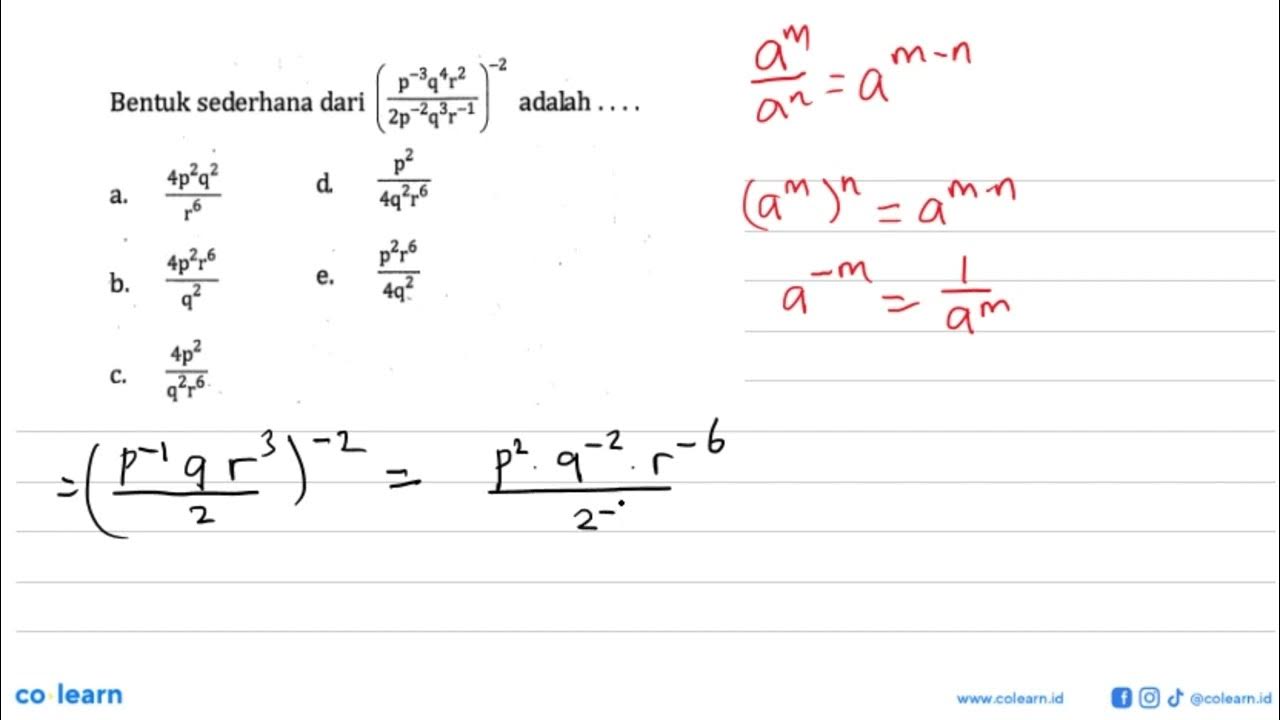 Bentuk sederhana dari (p⁻³q⁴r² / 2p⁻²q³r⁻¹)⁻² adalah . . . .
a. 4p²q² / r⁶
d. p² / 4q²r⁶
b. 4p²r⁶ / q²
e. p²r⁶ / 4q²
c. 4p² / q²r⁶
aᵐ / aⁿ = aᵐ⁻ⁿ
(aᵐ)ⁿ = aᵐ·ⁿ
a⁻ᵐ = 1 / aᵐ
= (p⁻¹ q r³ / 2)⁻² = p² · q⁻² · r⁻⁶ / 2⁻
co learn
www.colearn.id
@colearn.id